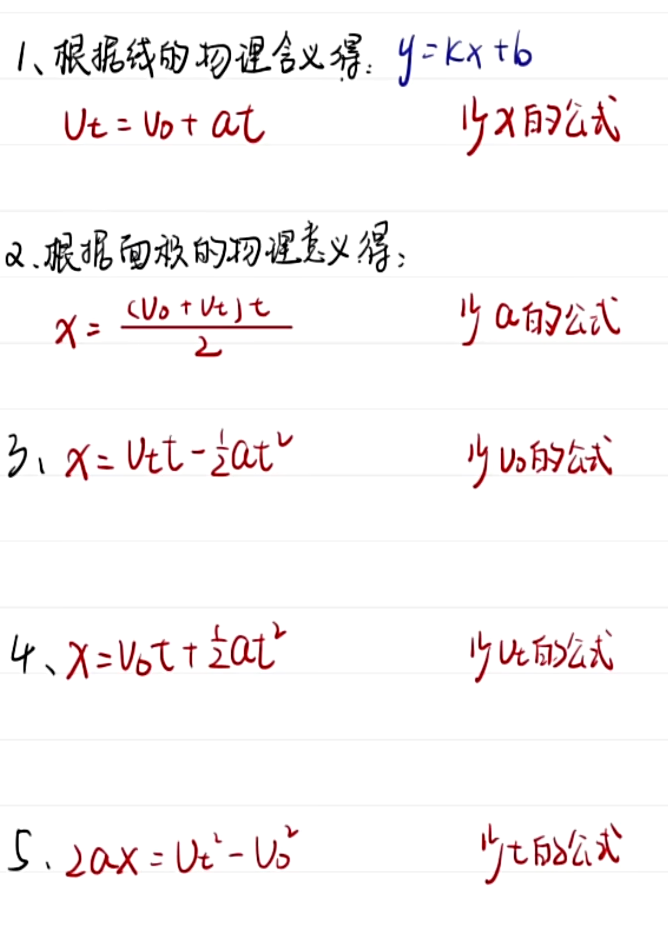 1、根据线的物理含义得：y=kx+b
Vt=V0+at 少x的公式
2、根据面积的物理意义得：
x=(V0+Vt)t/2 少a的公式
3、x=Vtt-½at² 少V0的公式
4、x=V0t+½at² 少Vt的公式
5、2ax=Vt²-V0² 少t的公式